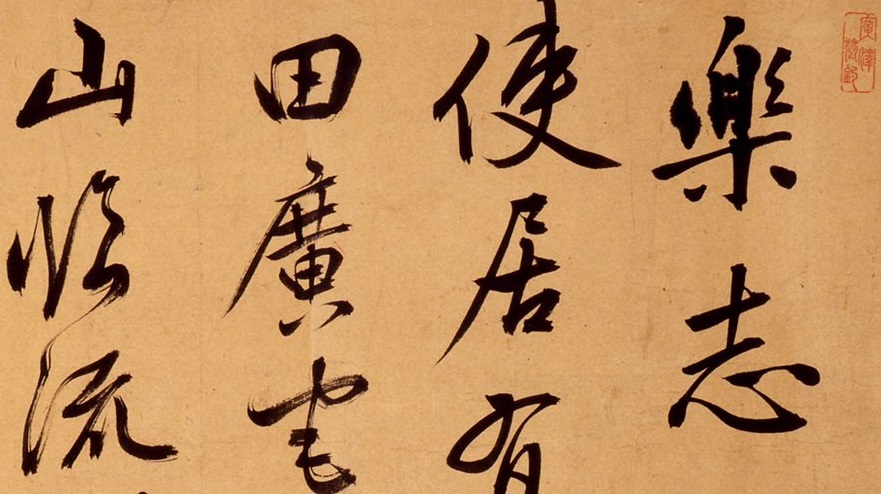 樂志
使居有
田廣宅
山臨流